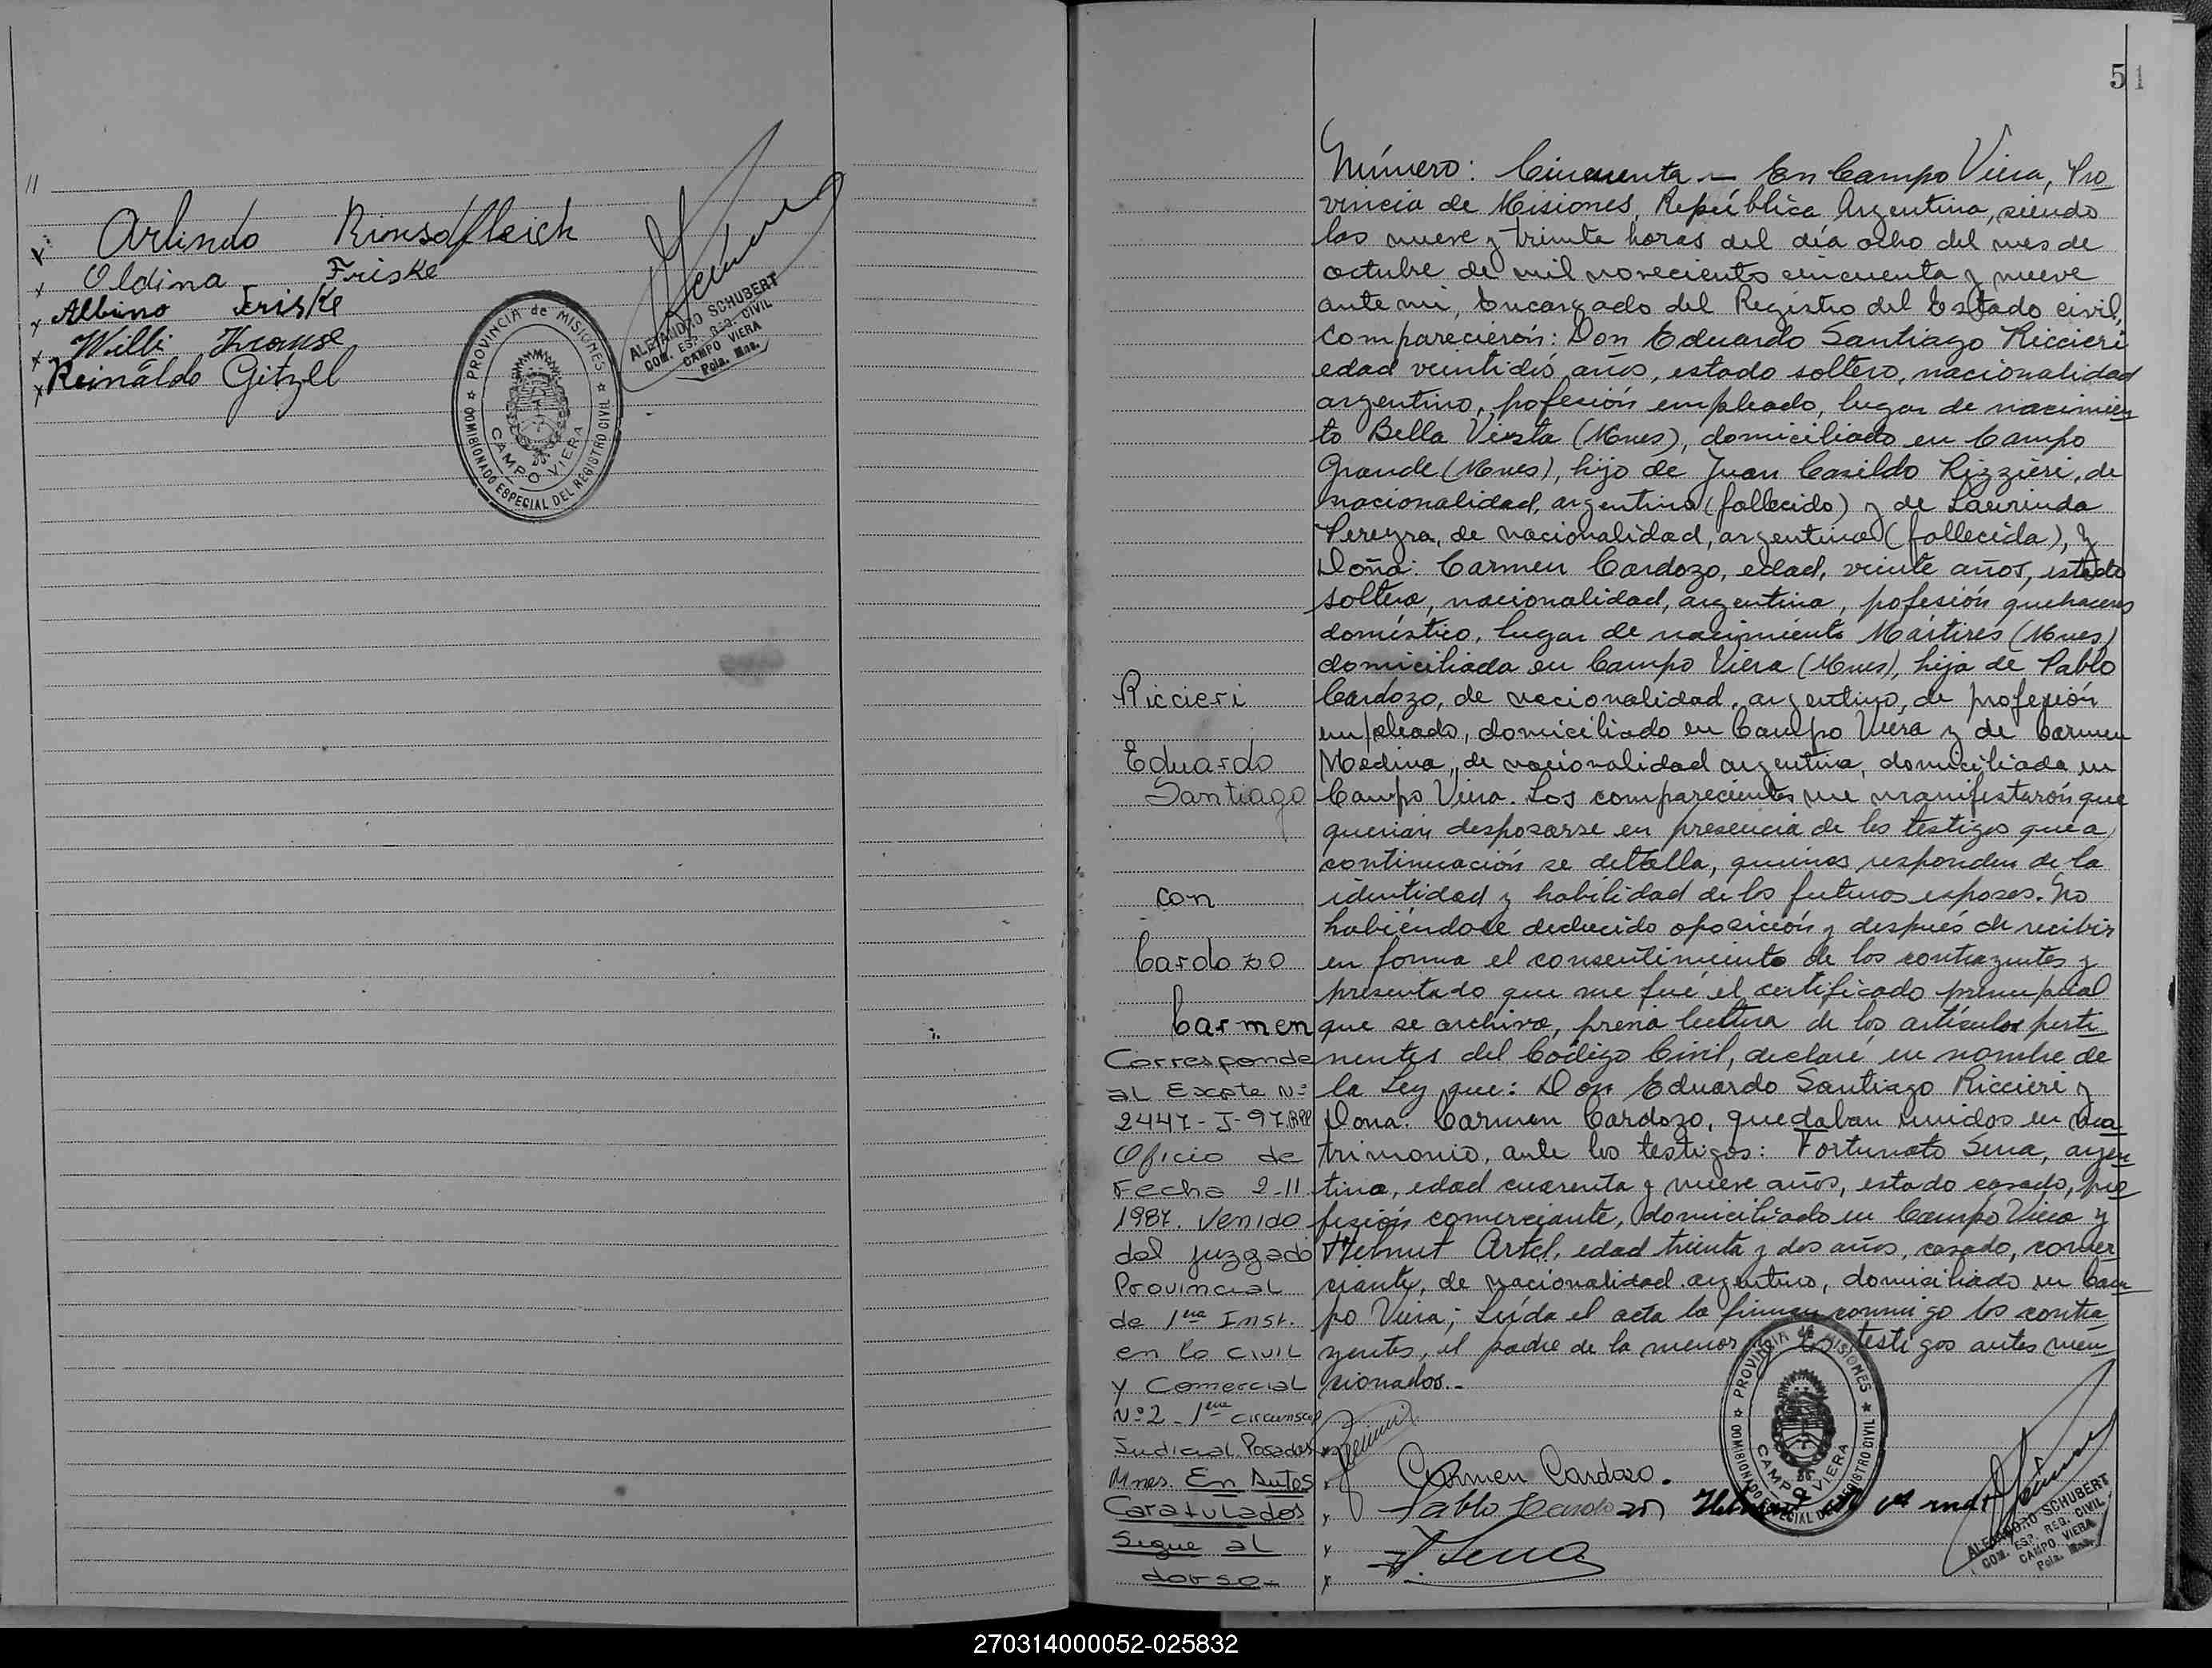 11
Arlindo Rinsdfleich
Oldina Friske
Albino Friske
Willi Krause
Reinaldo Gitzel
PROVINCIA de MISIONES
CAMPO VIERA
COMISIONADO ESPECIAL DEL REGISTRO CIVIL
ALEJANDRO SCHUBERT
COM. ESP. REG. CIVIL
CAMPO VIERA
Pcia. Mns.
51
Número: Cincuenta - En Campo Viera, Pro
vincia de Misiones, República Argentina, siendo
las nueve y treinta horas del día ocho del mes de
octubre de mil novecientos cincuenta y nueve
ante mi, Encargado del Registro del Estado civil,
comparecierón: Don Eduardo Santiago Riccieri
edad veintidós años, estado soltero, nacionalidad
argentino, pofesión empleado, lugar de nacimien
to Bella Vista (Mnes), domiciliado en Campo
Grande (Mnes), hijo de Juan Casildo Rizzieri, de
nacionalidad, argentino (fallecido) y de Laurinda
Pereyra, de nacionalidad, argentina (fallecida), y
Doña: Carmen Cardozo, edad, veinte años, estado
soltera, nacionalidad, argentina, pofesión quehaceres
doméstico, lugar de nacimiento Mártires (Mnes)
domiciliada en Campo Viera (Mnes), hija de Pablo
Cardozo, de nacionalidad, argentino, de profesión
empleado, domiciliado en Campo Viera y de Carmen
Medina, de nacionalidad argentina, domiciliada en
Campo Viera. Los comparecientes me manifestarón que
querián desposarse en presencia de los testigos que a
continuación se detalla, quienes responden de la
identidad y habilidad de los futuros esposos. No
habiéndose deducido oposición y después de recibir
en forma el consentimiento de los contrayentes y
presentado que me fué el certificado prenupcial
que se archiva, previa lectura de los artículos perti
nentes del Código Civil, declaré en nombre de
la Ley que: Don Eduardo Santiago Riccieri y
Dona: Carmen Cardozo, quedaban unidos en ma
trimonio, ante los testigos: Fortunato Sena, argen
tino, edad cuarenta y nueve años, estado casado, pro
fesión comerciante, domiciliado en Campo Viera y
Helmut Artel, edad treinta y dos años, casado, comer
ciante, de nacionalidad argentino, domiciliado en Cam
po Viera; Leída el acta la firman conmigo los contra
yentes, el padre de la menor y los testigos antes men
cionados.-
Riccieri
Eduardo
Santiago
con
Cardozo
Carmen
Corresponde
al Expte Nº
2447-J-97
Oficio de
Fecha 2-11
1987. Venido
del juzgado
Provincial
de 1era Inst.
en lo civil
y Comercial
Nº 2 - 1era circunscrip
Judicial Posadas
Mnes. En Autos
Caratulados
Sigue al
dorso.-
Carmen Cardozo.
Pablo Cardozo
F. Sena
PROVINCIA de MISIONES
CAMPO VIERA
COMISIONADO ESPECIAL DEL REGISTRO CIVIL
ALEJANDRO SCHUBERT
COM. ESP. REG. CIVIL
CAMPO VIERA
Pcia. Mns.
270314000052-025832